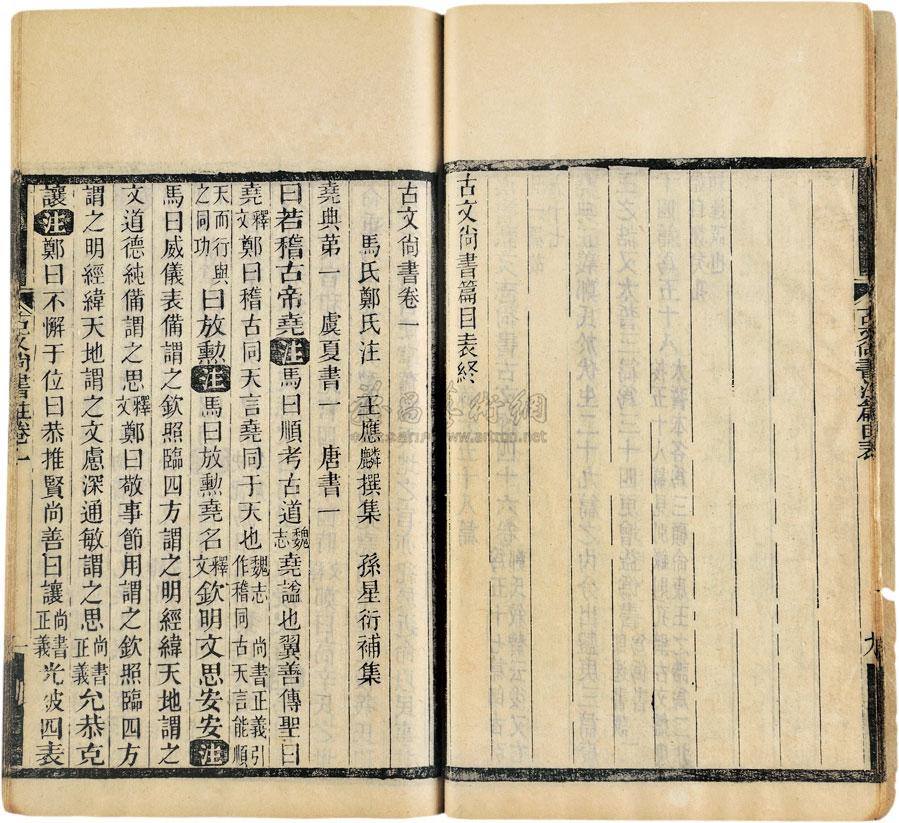 古文尚書篇目表終
古文尚書注篇目表
九
古文尚書卷一
馬氏鄭氏注 王應麟撰集 孫星衍補集
堯典第一 虞夏書一 唐書一
曰若稽古帝堯注馬曰順考古道魏志堯諡也翼善傳聖曰
堯釋文鄭曰稽古同天言堯同于天也魏志作稽同古天言能順尚書正義引
天而行與之同功曰放勳注馬曰放勳堯名釋文欽明文思安安注
馬曰威儀表備謂之欽照臨四方謂之明經緯天地謂之
文道德純備謂之思釋文鄭曰敬事節用謂之欽照臨四方
謂之明經緯天地謂之文慮深通敏謂之思尚書正義允恭克
讓注鄭曰不懈于位曰恭推賢尚善曰讓尚書正義光彼四表
古文尚書註卷一
一